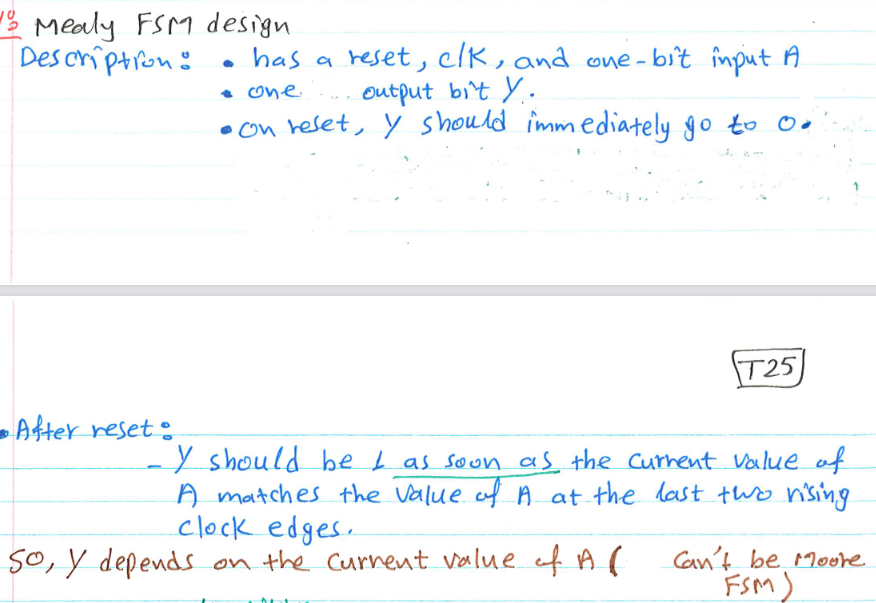 Mealy FSM design
Description: • has a reset, clk, and one-bit input A
• one output bit Y.
• on reset, Y should immediately go to 0.
T25
• After reset:
- Y should be 1 as soon as the current value of
A matches the value of A at the last two rising
clock edges.
So, Y depends on the current value of A ( Can't be Moore
FSM)